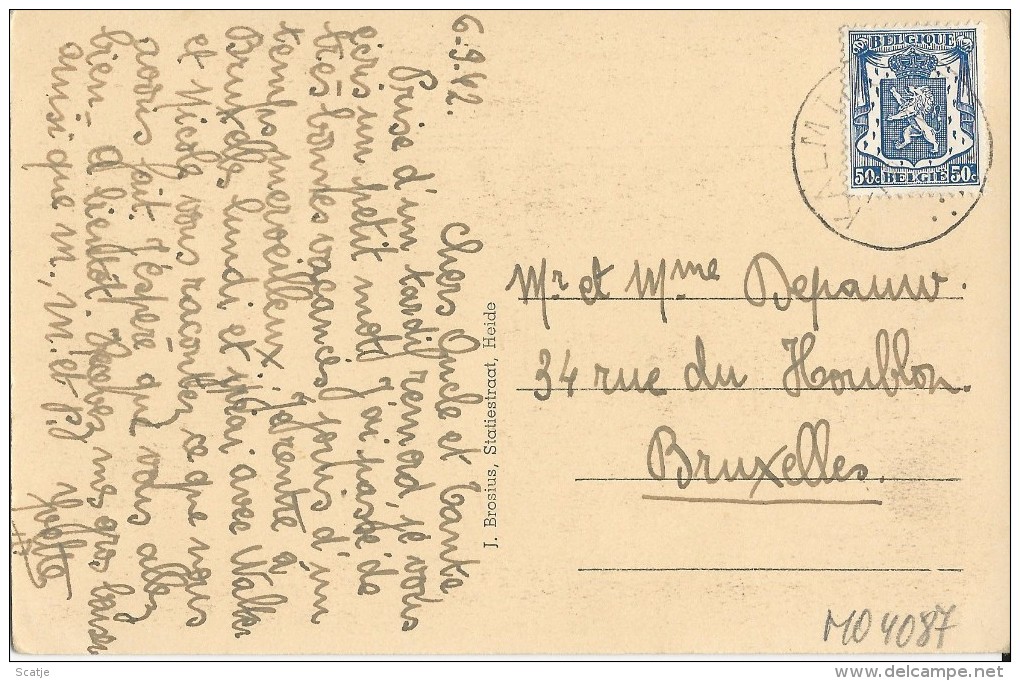 6-9.42.
Chers Oncle et Tante
Prise d'un tardif remord, je vous
écris un petit mot. J'ai passé de
très bonnes vacances jouis d'un
temps merveilleux. Je rentre à
Bruxelles lundi et j'irai avec
et Nicole vous raconter ce que nous
avons fait. J'espère que vous allez
bien - A bientôt. Recevez mes gros baisers
ainsi que M., M. et P.
Yvette
J. Brosius, Statiestraat, Heide
BELGIQUE
50c BELGIË 50c
KALMT
Mr et Mme Depauw.
34 rue du Houblon.
Bruxelles.
MO 4087
Scatje
www.delcampe.net